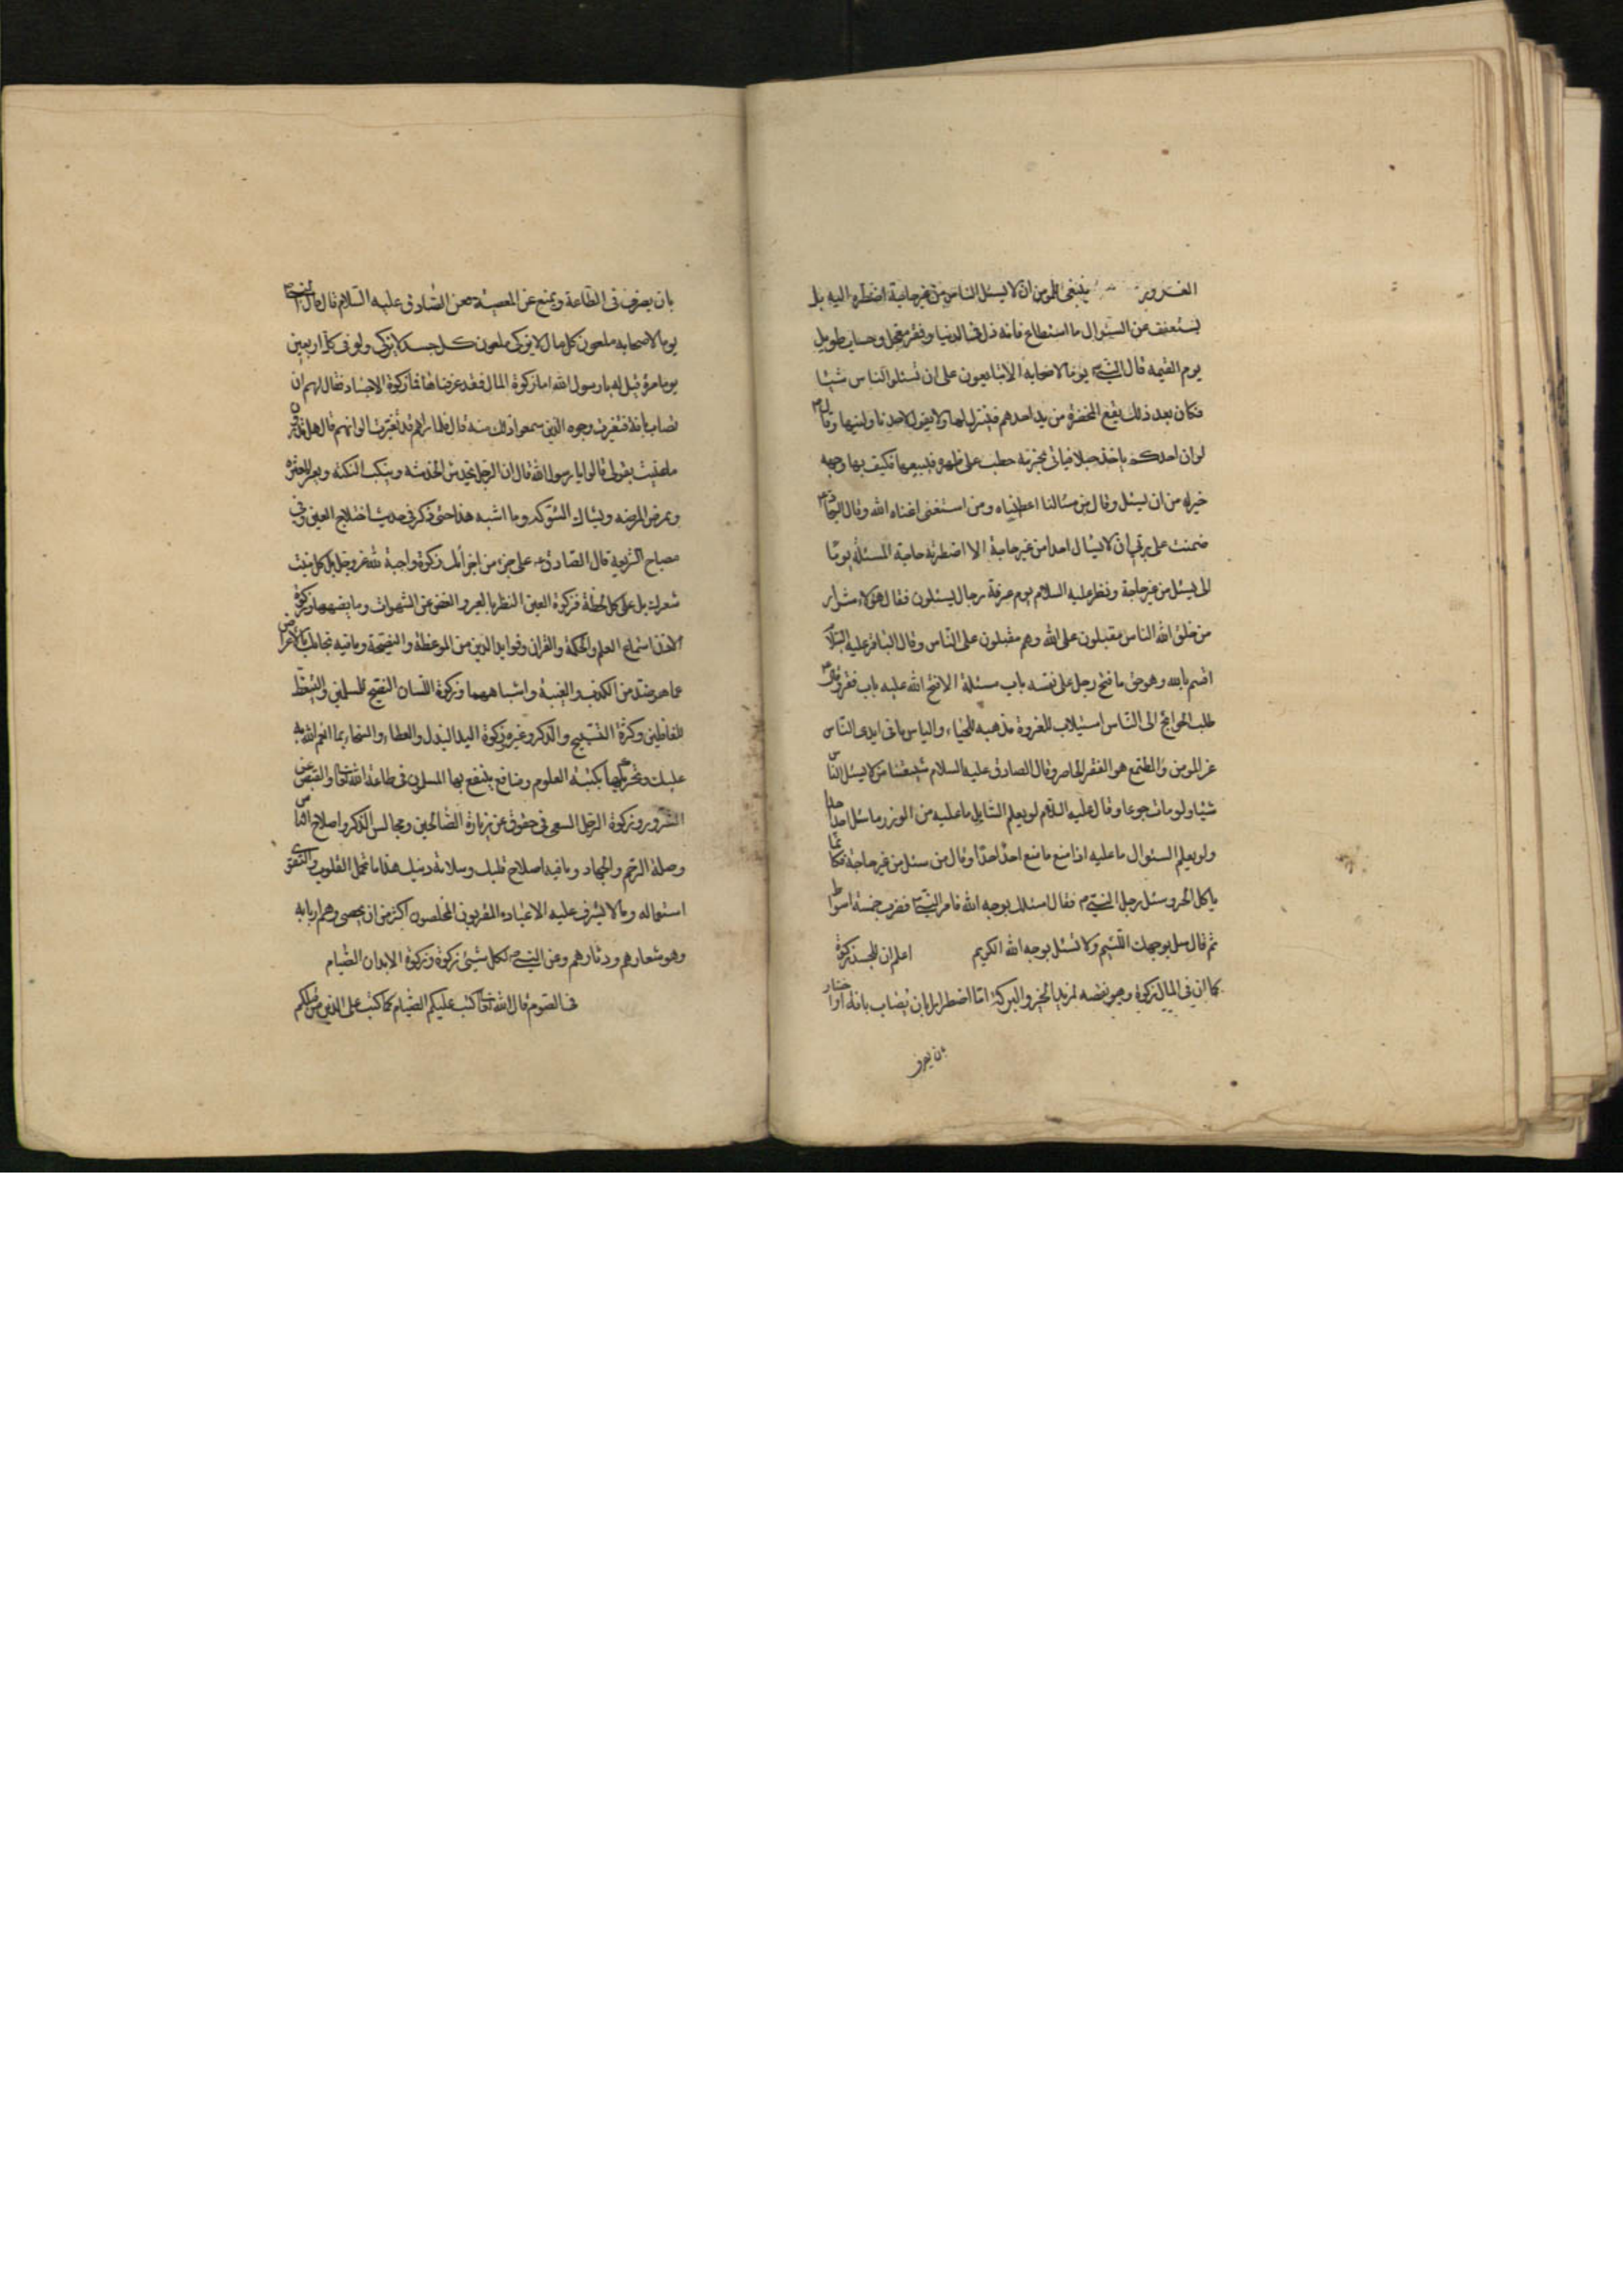 الغرور ينبغى للمؤمن ان لا يسئل الناس من غير حاجة اضطره اليه بل
يستعفف عن السئوال ما استطاع فانه ذل فى الدنيا وفقر معجل وحساب طويل
يوم القيمة قال النبى يوما لاصحابه الا تبايعون على ان لا تسئلوا الناس شيئا
فكان بعد ذلك يقع المخصرة من يد احدهم فينزل لها ولا يقول لاحد ناولنيها وقال
لو ان احدكم ياخذ حبلا فياتى بحزمة حطب على ظهره فيبيعها فكيف بها وجهه
خير له من ان يسئل وقال من سئالنا اعطيناه ومن استغنى اغناه الله وقال
ضمنت على ربى ان لا يسال احد من غير حاجة الا اضطرته حاجة المسئلة يوما
الى يسئل من غير حاجة ونظر عليه السلام يوم عرفة رجال يسئلون فقال هؤلاء شرار
من خلق الله الناس مقبلون على الله وهم مقبلون على الناس وقال الباقر عليه السلام
اقسم بالله وهو حق ما فتح رجل على نفسه باب مسئلة الا فتح الله عليه باب فقر وقال
طلب الحوائج الى الناس استيلاب للعزوة مذهبة للحياء والياس مما فى ايدى الناس
عز المومن والطمع هو الفقر الحاضر وقال الصادق عليه السلام شيعتنا من لا يسئل الناس
شيئا ولو مات جوعا وقال عليه السلام لو يعلم السايل ما عليه من الوزر ما سئل احد احدا
ولو يعلم السئوال ما عليه اذا منع ما منع احد احدا وقال من سئل من غير حاجة فكانما
ياكل الخمر وسئل رجل النبى فقال اسئلك بوجه الله فامر النبى فضرب خمسة اسواط
ثم قال سل بوجهك اللئيم ولا تسئل بوجه الله الكريم اعلم ان للجسد زكوة
كما ان فى المال زكوة وهو نقصه لمزيد الخير والبركة اما اضطرارا بان يصاب بافة او اختيارا
بان يصرف
بان يصرف فى الطاعة ويمنع عن المعصية فعن الصادق عليه السلام قال قال النبى
يوما لاصحابه ملعون كل مال لا يزكى ملعون كل جسد لا يزكى ولو فى كل اربعين
يوما مرة قيل له يا رسول الله اما زكوة المال فقد عرفناها فما زكوة الاجساد فقال لهم ان
تصاب بافة فتغيرت وجوه الذين سمعوا ذلك منه قال فلما راهم قد تغيرت الوانهم قال هل تدرون
ما عنيت بقولى قالوا لا يا رسول الله قال ان الرجل يخدش الخدشة وينكب النكبة ويعثر العثرة
ويمرض المرضة ويشاك الشوكة وما اشبه هذا حتى ذكر فى حديثه اختلاج العين وفى
مصباح الشريعة قال الصادق على كل جزء من اجزائك زكوة واجبة لله عز وجل بل كل منبت
شعرة بل على كل لحظة فزكوة العين النظر بالعبر والغض عن الشهوات وما يضاهيها وزكوة
الاذن استماع العلم والحكمة والقران وفوايد الدين من الموعظة والنصيحة وما فيه نجاتك بالاعراض
عما هو ضده من الكذب والغيبة واشباههما وزكوة اللسان النصح للمسلمين والتيقظ
للغافلين وكثرة التسبيح والذكر وغيره وزكوة اليد البذل والعطاء والسخاء بما انعم الله به
عليك وتحريكها بكتبه العلوم ومنافع ينتفع بها المسلمون فى طاعة الله تعالى والقبض عن
الشرور وزكوة الرجل السعى فى حقوق من زيارة الصالحين ومجالس الذكر واصلاح الناس
وصلة الرحم والجهاد وما فيه اصلاح قلبك وسلامة دينك هذا ما تحمل القلوب
استعماله وما لا يشرف عليه الا عباده المقربون المخلصون اكثر من ان يحصى وهم اربابه
وهو شعارهم ودثارهم وعن النبى لكل شيئ زكوة وزكوة الابدان الصيام
فى الصوم قال الله تعالى كتب عليكم الصيام كما كتب على الذين من قبلكم